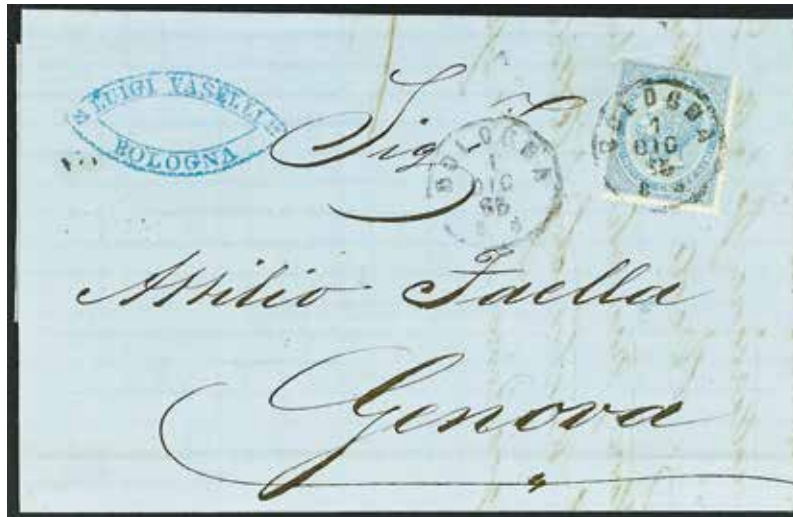 LUIGI VASELLI
BOLOGNA
Sig.r
BOLOGNA
1
DIC
65
BOLOGNA
1
DIC
Attilio Faella
Genova